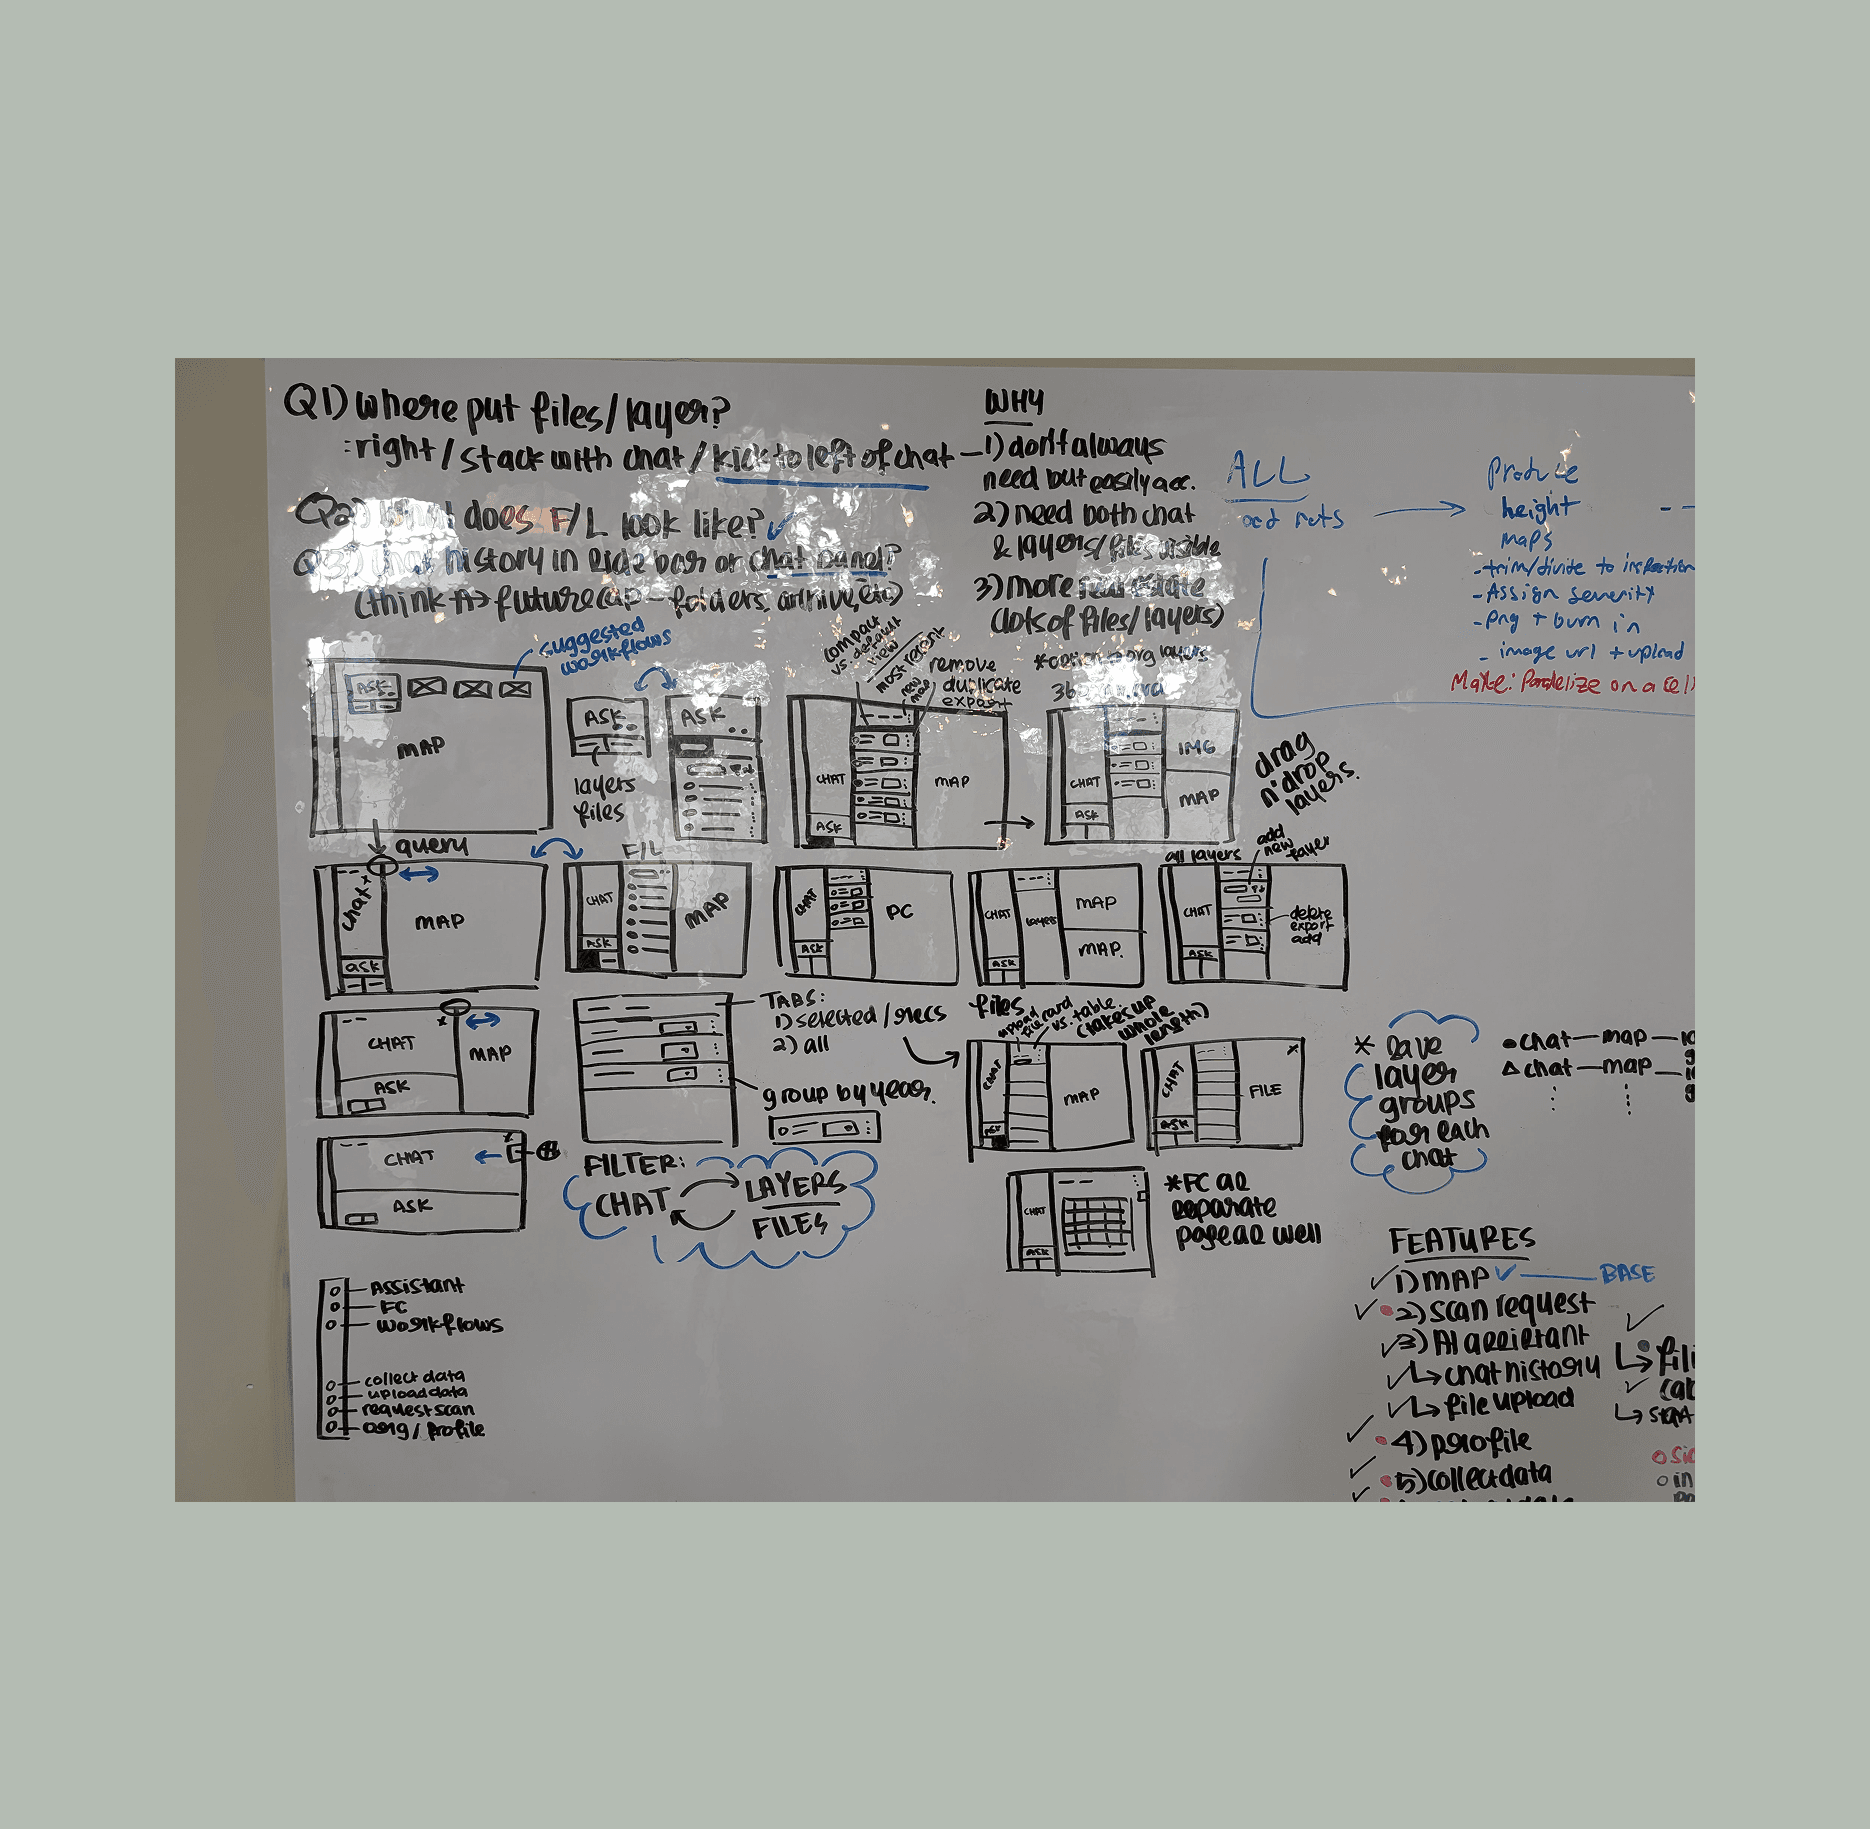 Q1) where put files/layer?
: right / stack with chat / kick to left of chat
Q2) What does F/L look like? ✓
Q3) chat history in side bar or chat panel?
(think → future cap – folders, archive, etc)
WHY
1) don't always
need but easily acc.
2) need both chat
& layers/files visible
3) more real estate
(lots of files/layers)
ALL
Produce
height
maps
- trim/divide to
- Assign severity
- png + burn in
- image url + upload
Make: Parallelize on a
suggested
workflows
ASK
MAP
query
ASK
layers
files
ASK
compact
vs. default
view
most recent
new
map
remove
duplicate
export
CHAT
ASK
MAP
layers
CHAT
ASK
IMG
MAP
drag
n' drop
layers.
chat +
ask
MAP
F/L
CHAT
ASK
MAP
CHAT
ASK
PC
CHAT
ASK
layers
MAP
MAP.
all layers
add
new
layer
CHAT
ASK
delete
export
add
CHAT
MAP
ASK
TABS:
1) selected / recs
2) all
group by year.
files
upload
file card
vs. table.
(takes up
whole
length)
CHAT
ASK
MAP
CHAT
ASK
FILE
x
* save
layer
groups
for each
chat
• chat — map —
△ chat — map —
CHAT
ASK
FILTER:
CHAT
LAYERS
FILES
CHAT
ASK
* FC as
separate
page as well
Assistant
FC
workflows
collect data
upload data
request scan
org / profile
FEATURES
✓ 1) MAP ✓ — BASE
✓ 2) scan request
✓ 3) AI assistant
✓ ↳ chat history
✓ ↳ file upload
✓ 4) profile
✓ 5) collect data